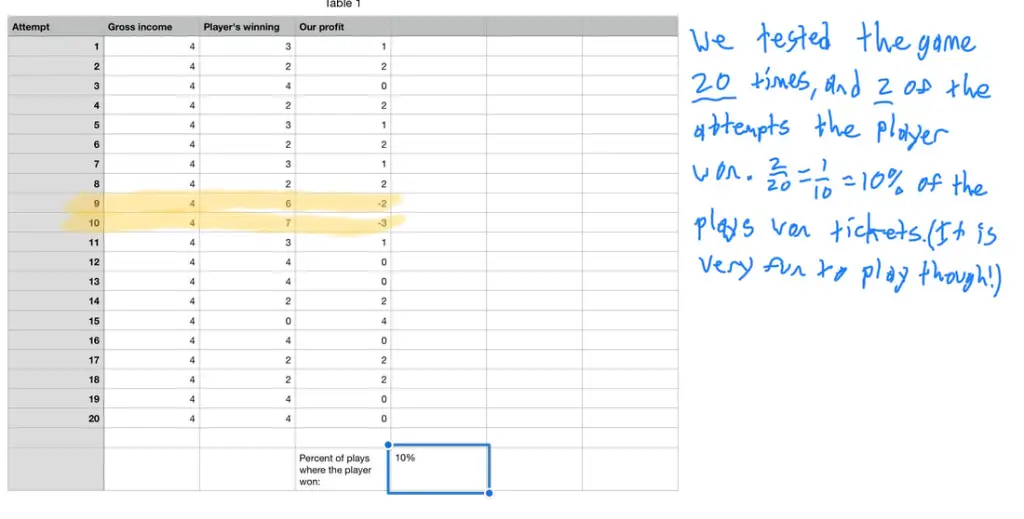 Table 1
Attempt Gross income Player's winning Our profit
1 4 3 1
2 4 2 2
3 4 4 0
4 4 2 2
5 4 3 1
6 4 2 2
7 4 3 1
8 4 2 2
9 4 6 -2
10 4 7 -3
11 4 3 1
12 4 4 0
13 4 4 0
14 4 2 2
15 4 0 4
16 4 4 0
17 4 2 2
18 4 2 2
19 4 4 0
20 4 4 0
Percent of plays 10%
where the player
won:
We tested the game
20 times, and 2 of the
attempts the player
won. 2/20 = 1/10 = 10% of the
plays won tickets. (It is
very fun to play though!)